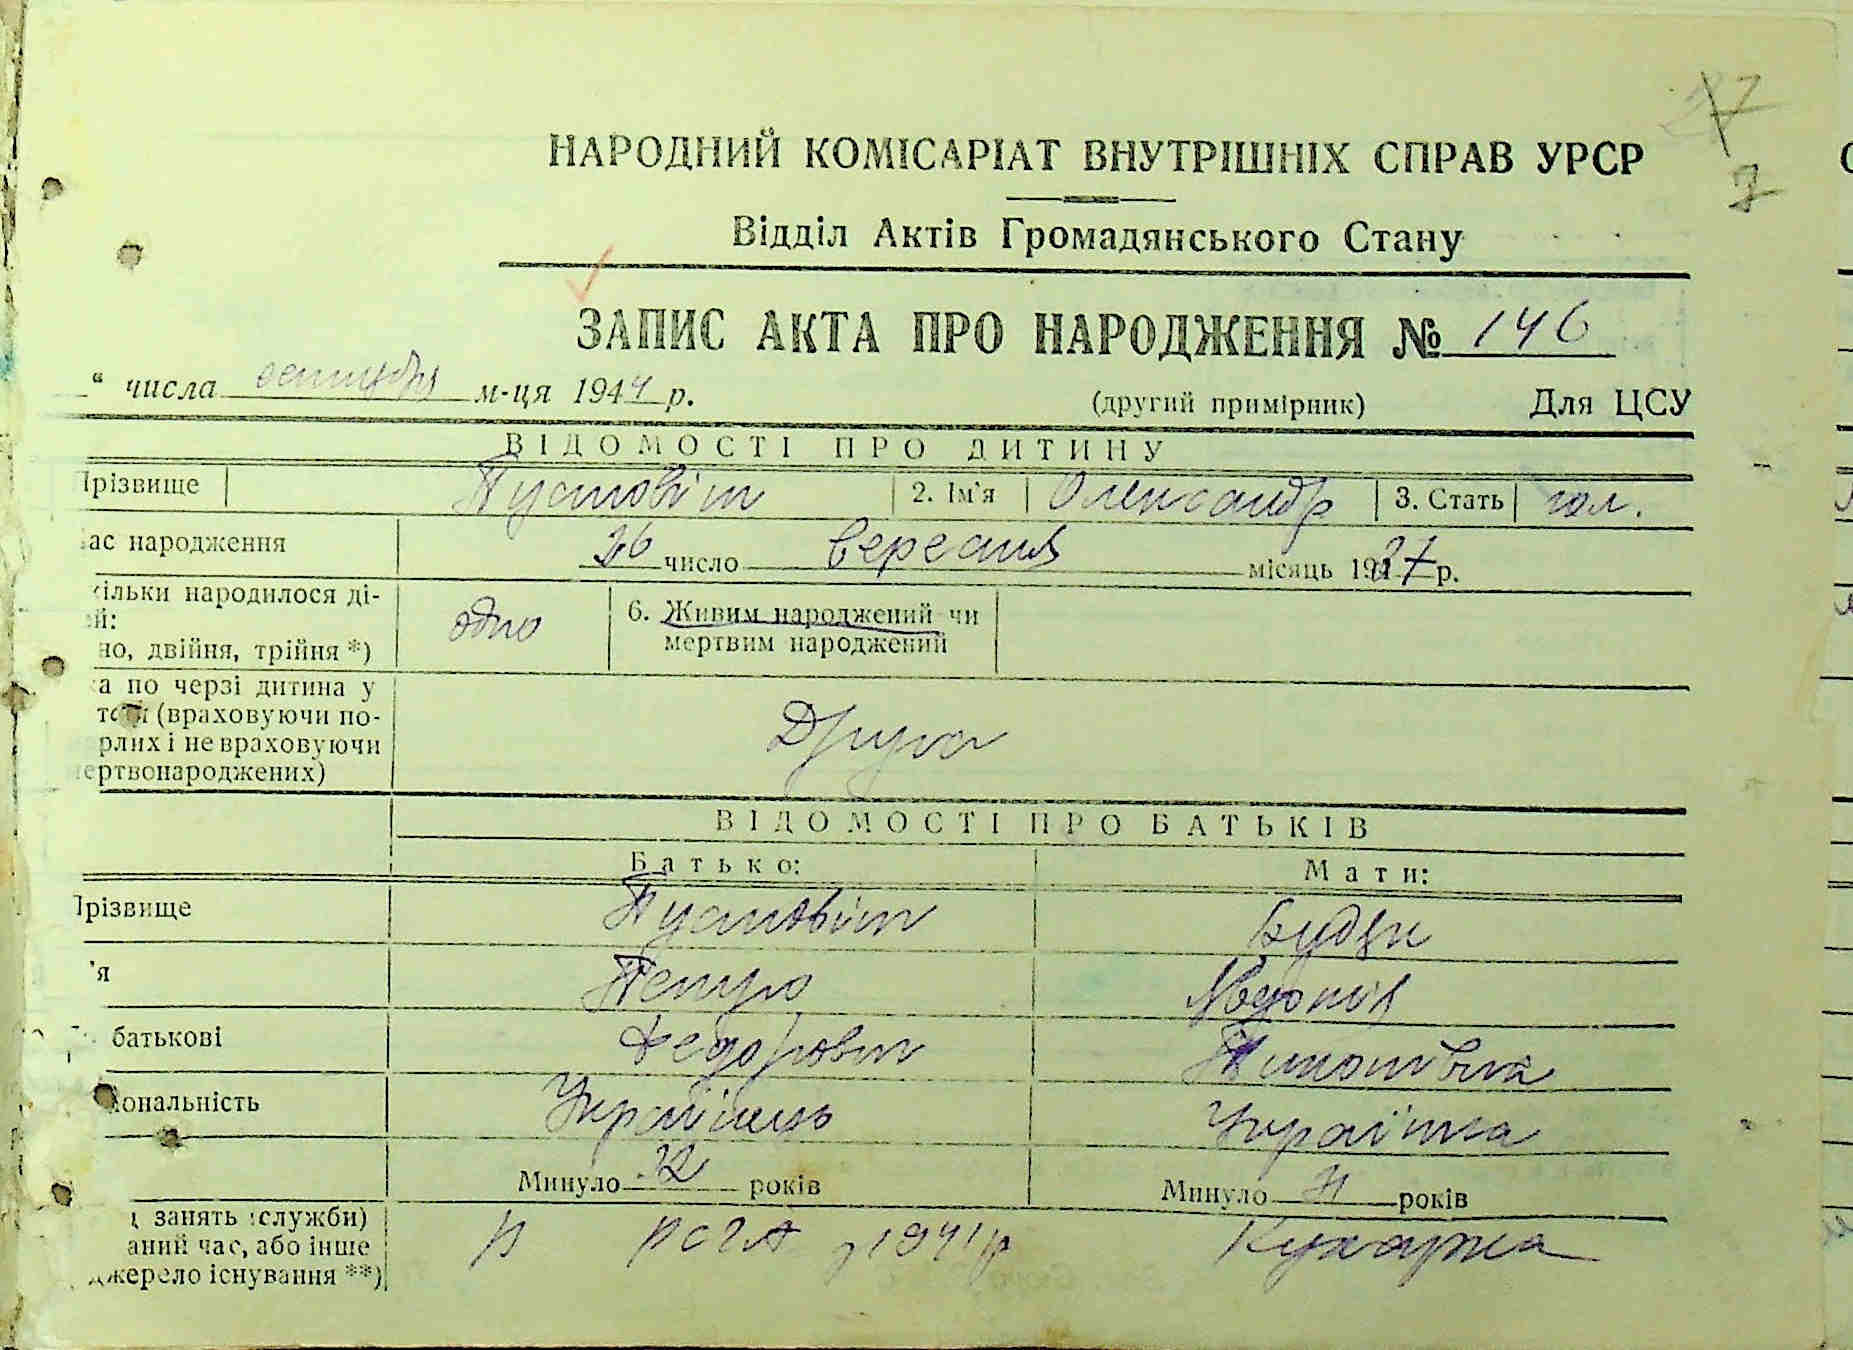 7
НАРОДНИЙ КОМІСАРІАТ ВНУТРІШНІХ СПРАВ УРСР
Відділ Актів Громадянського Стану
ЗАПИС АКТА ПРО НАРОДЖЕННЯ № 146
“ числа сентября м-ця 1944 р. (другий примірник) Для ЦСУ
ВІДОМОСТІ ПРО ДИТИНУ
Прізвище Пустовіт 2. Ім'я Олександр 3. Стать чол.
час народження 26 число вересня місяць 1937 р.
кільки народилося ді-
ей:
но, двійня, трійня *) одно 6. Живим народжений чи
мертвим народжений
ка по черзі дитина у
(враховуючи по-
рлих і не враховуючи
мертвонароджених) Друга
ВІДОМОСТІ ПРО БАТЬКІВ
Батько: Мати:
Прізвище Пустовіт
'я Петро
батькові Федорович Тимофіївна
іональність Українець Українка
Минуло 32 років Минуло 31 років
занять (служби)
аний час, або інше
джерело існування **) В РСЧА з 1941 р Кухарка